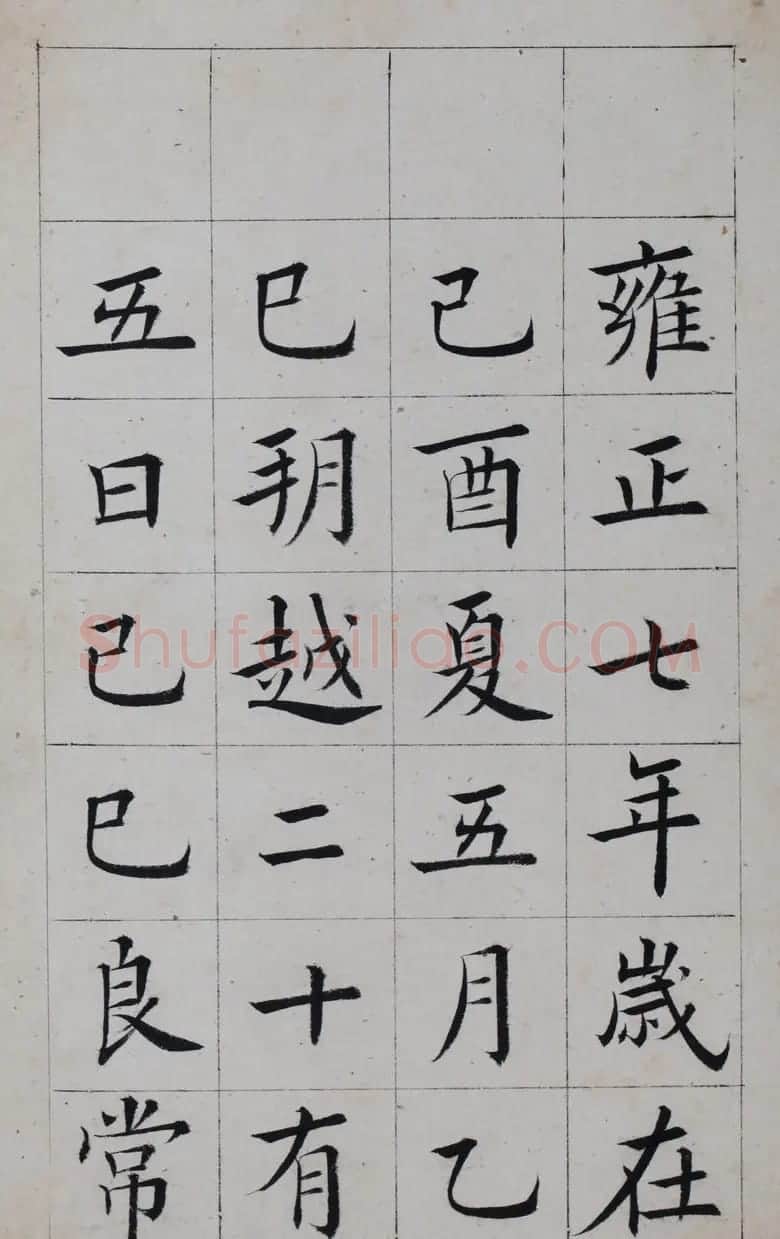 雍正七年歲在
己酉夏五月乙
巳朔越二十有
五日己巳良常
Shufaziliao.COM